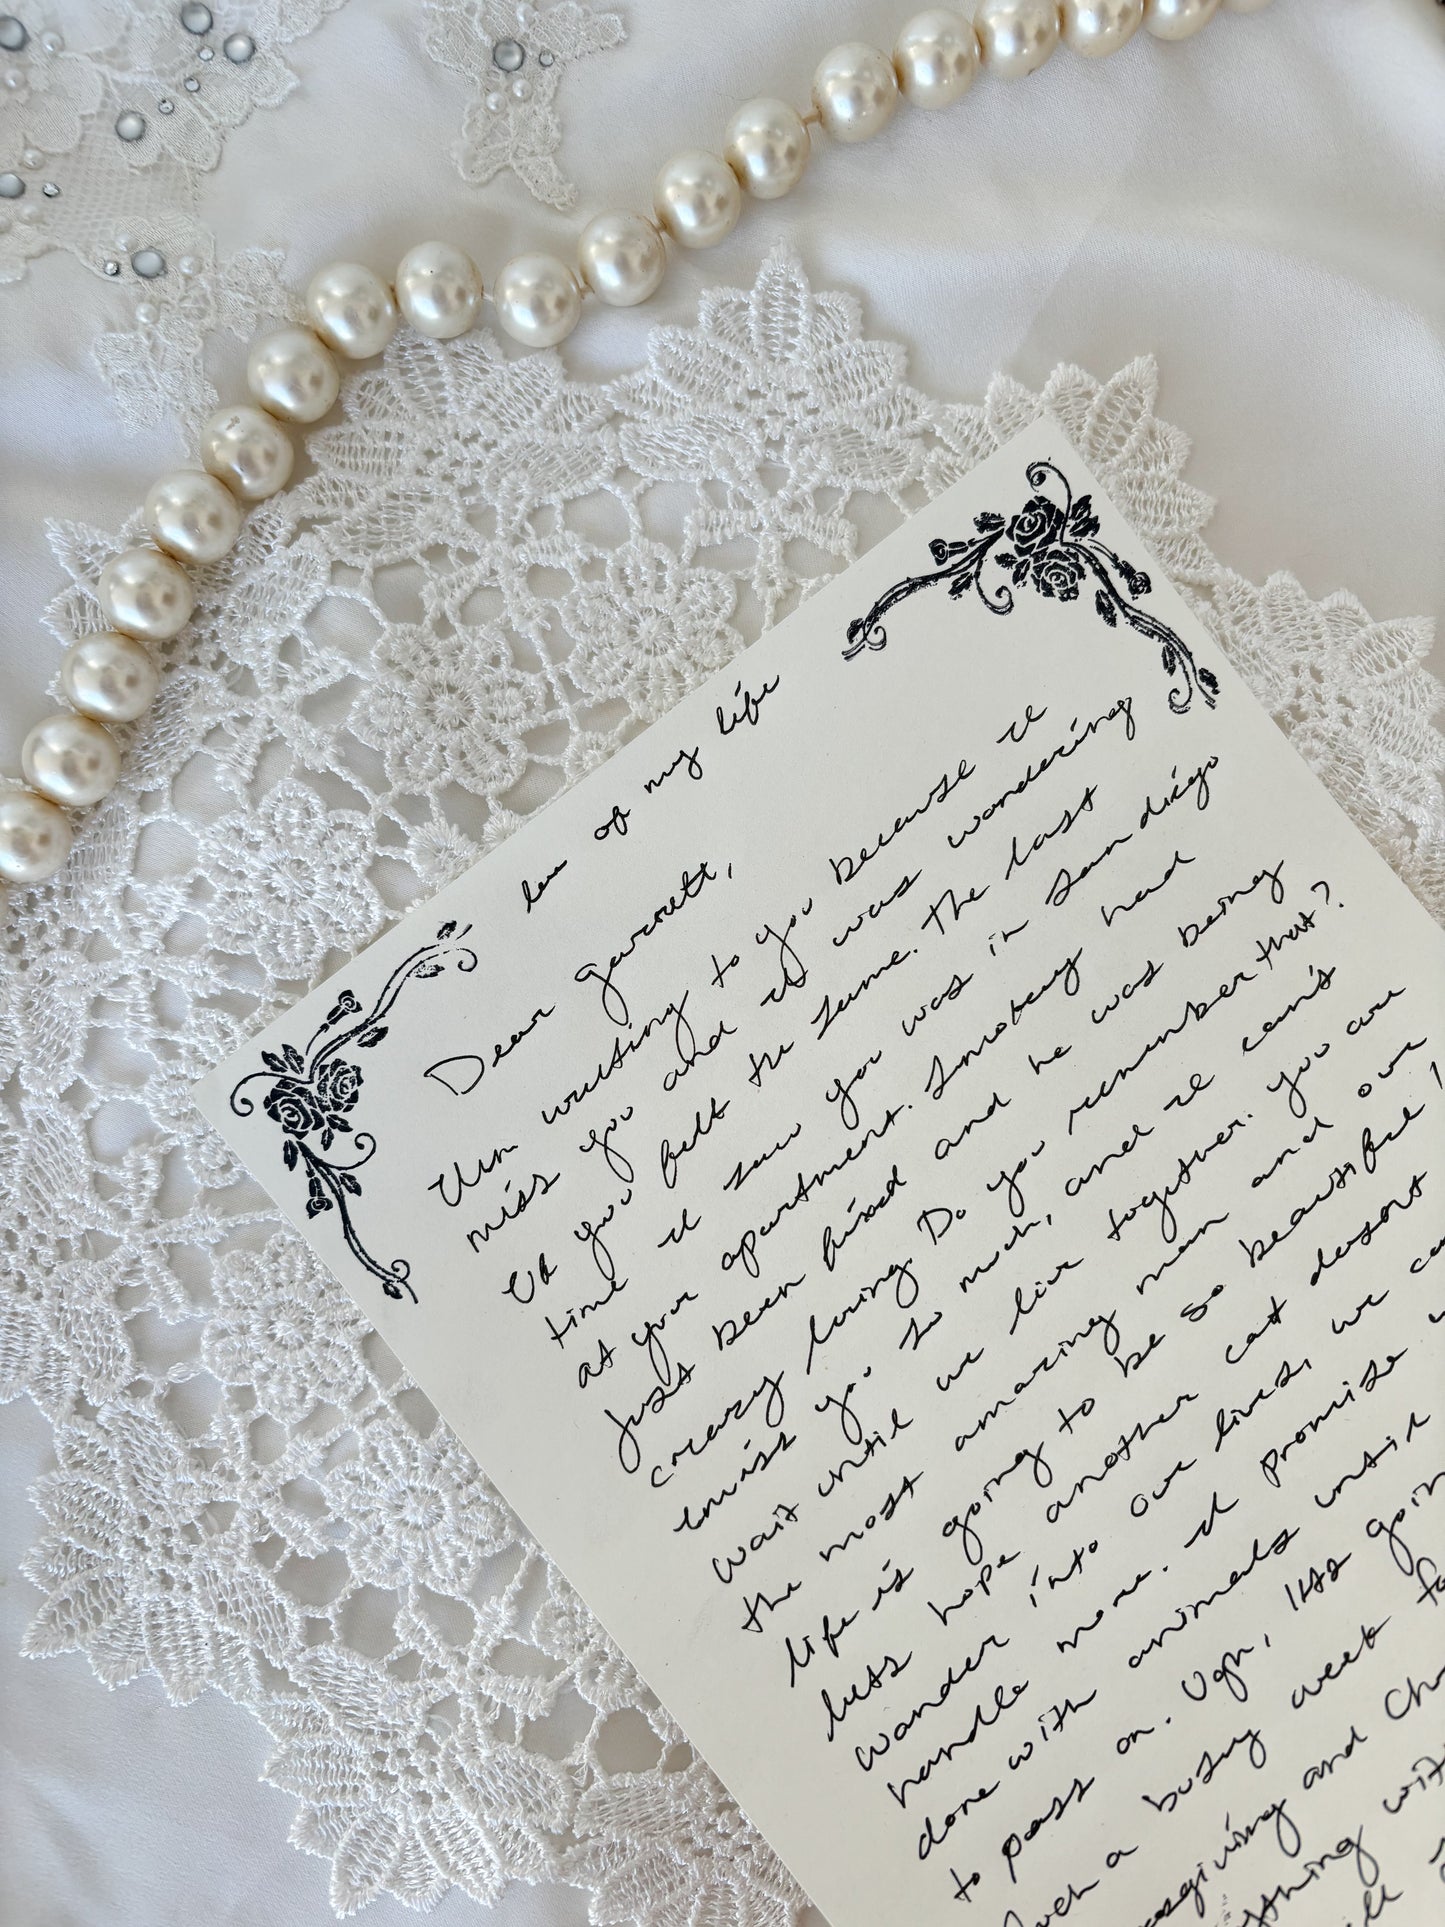 love of my life
Dear Garrett,
I'm writing to you because I
miss you and I was wondering
if you felt the same. The last
time I saw you was in San diego
at your apartment. Smokey had
just been fixed and he was being
crazy loving. Do you remember that?
I miss you so much, and I can't
wait until we live together. You are
the most amazing man and our
life is going to be so beautiful!
lets hope another cat doesnt
wander into our lives, we
handle more. I promise
done with animals until
to pass on. Ugh, Its going
such a busy week
and
with